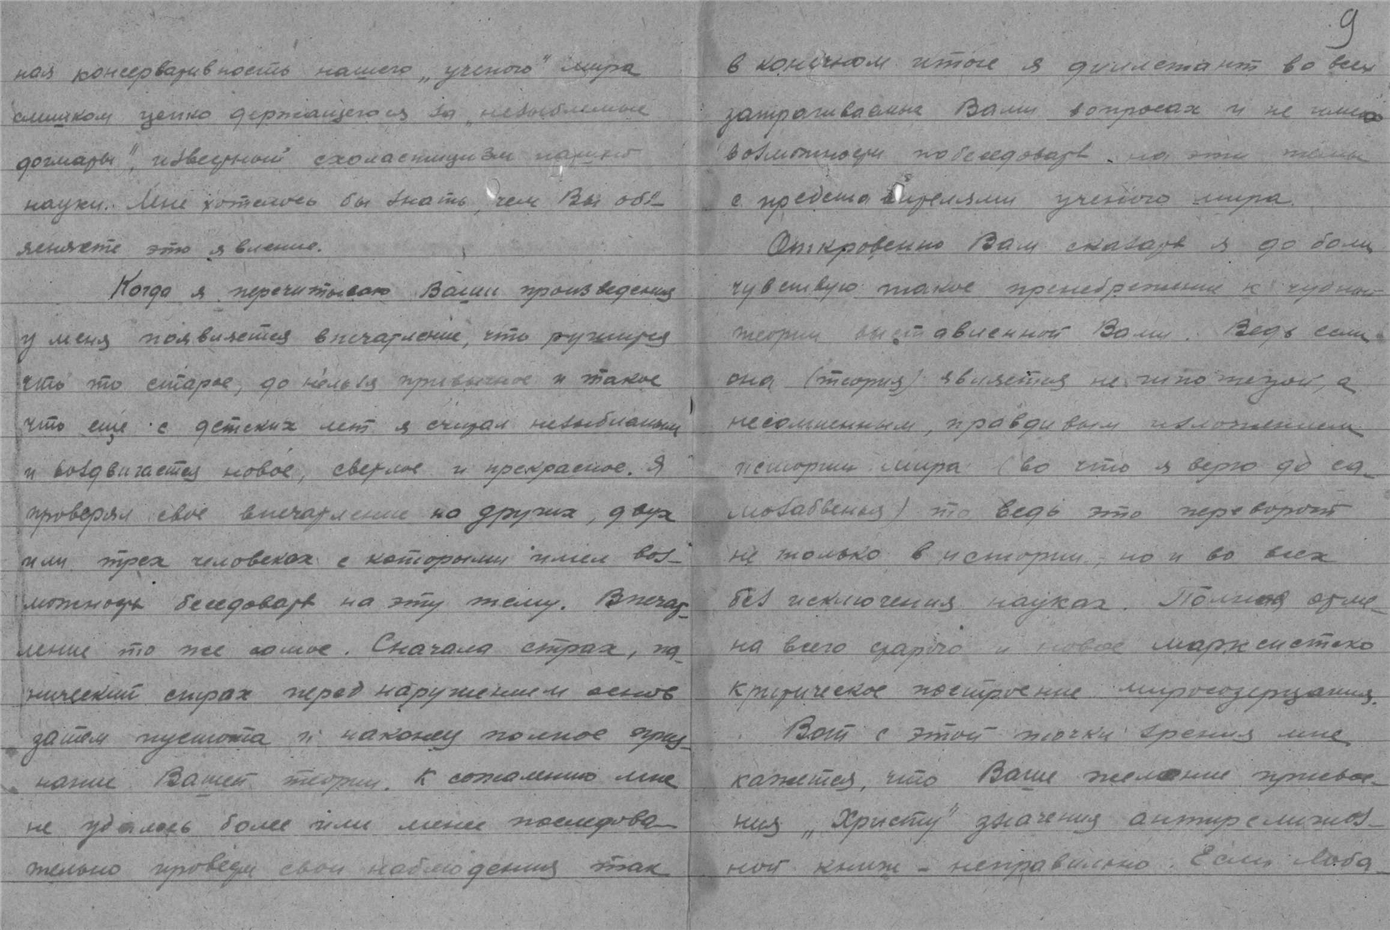 ная консервативность нашего „ученого" мира
слишком цепко держащегося за „незыблемые
догматы", известный схоластицизм нашей
науки. Мне хотелось бы знать, чем Вы объ-
ясняете это явление.
Когда я перечитываю Ваши произведения
у меня появляется впечатление, что рушится
что то старое, до нельзя привычное и такое
что еще с детских лет я считал незыблемым
и воздвигается новое, светлое и прекрасное. Я
проверял свое впечатление на других, двух
или трех человеках с которыми имел воз-
можность беседовать на эту тему. Впечат-
ление то же самое. Сначала страх, па-
нический страх перед нарушением основ
затем пустота и наконец полное приз-
нание Вашей теории. К сожалению мне
не удалось более или менее последова-
тельно провести свои наблюдения так
9
в конечном итоге я дилетант во всех
затрагиваемых Вами вопросах и не имею
возможности побеседовать на эти темы
с представителями ученого мира.
Откровенно Вам сказать я до боли
чувствую такое пренебрежение к чудной
теории выставленной Вами. Ведь если
она (теория) является не гипотезой, а
несомненным, правдивым изложением
истории мира (во что я верю до са-
мозабвенья) то ведь это переворот
не только в истории, но и во всех
без исключения науках. Полная отме-
на всего старого и новое марксистско
критическое построение миросозерцания.
Вот с этой точки зрения мне
кажется, что Ваше желание присвое-
ния „Христу" значения антирелигиоз-
ной книж - неправильно. Если Лоба-